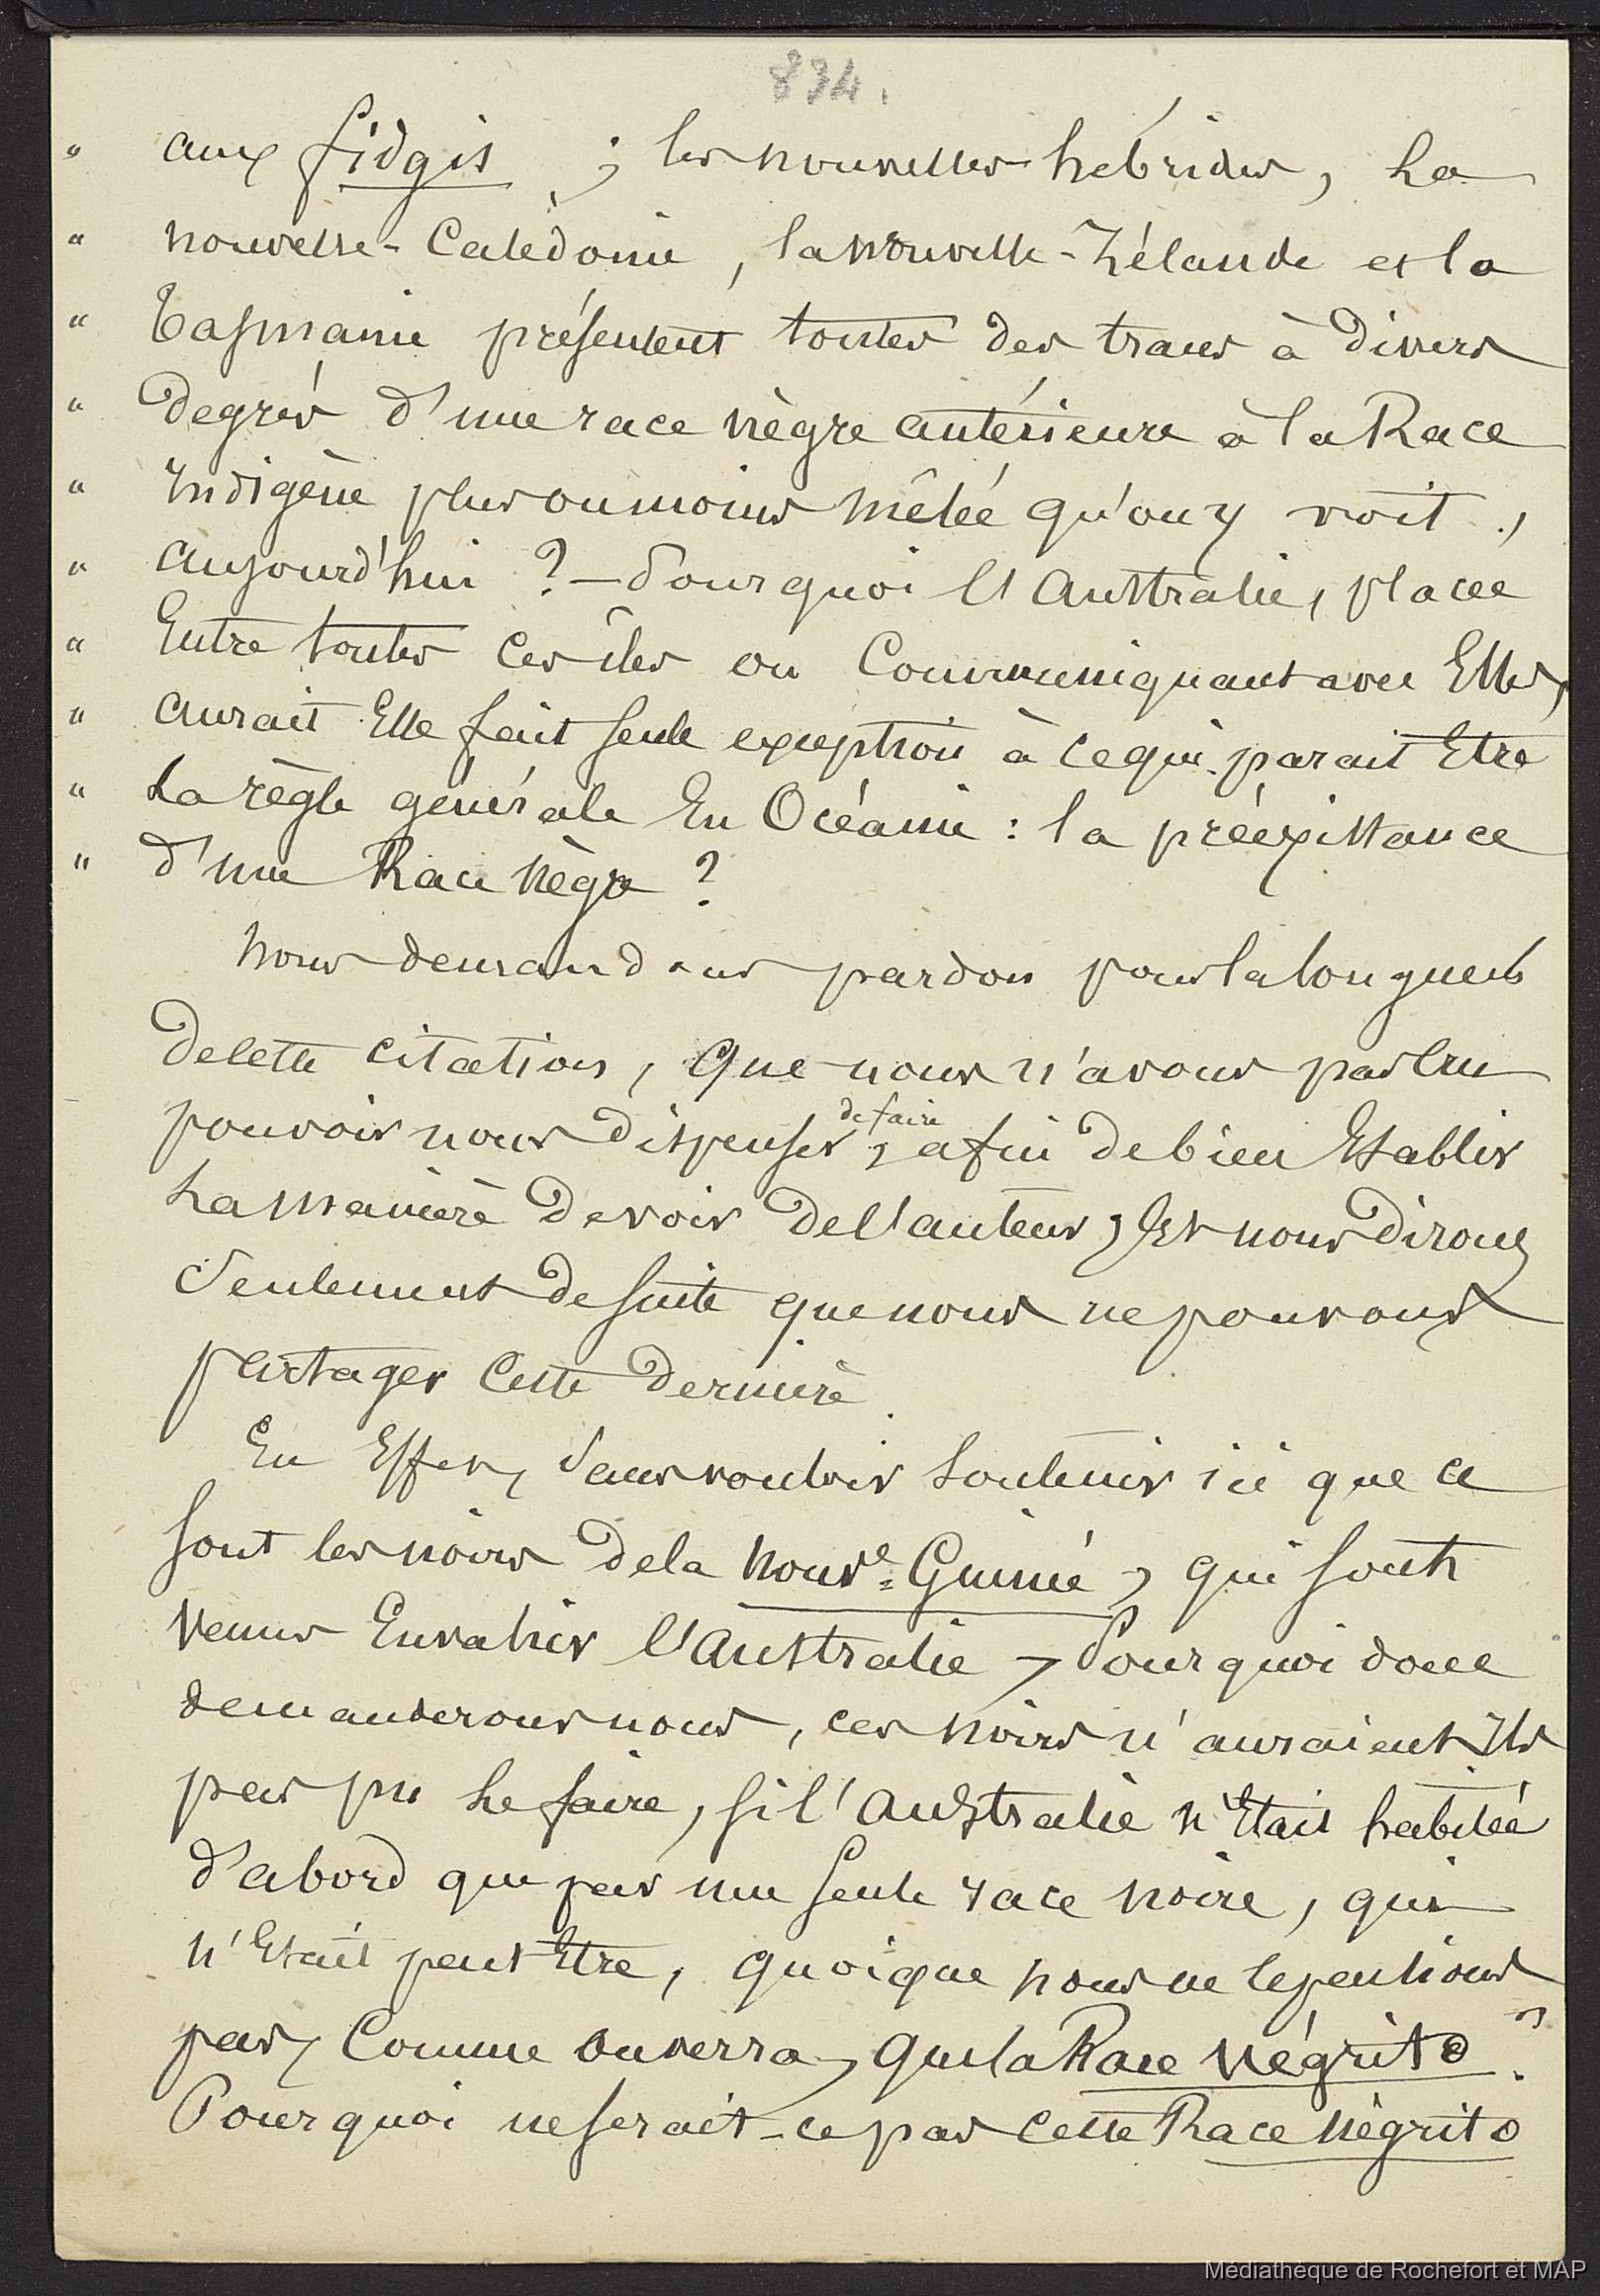 834.
" aux fidgis ; les nouvelles hébrides, la
" nouvelle-Calédonie, la nouvelle-Zélande et la
" Tasmanie présentent toutes des traces à divers
" degrés d'une race nègre antérieure à la Race
" Indigène plus ou moins mêlée qu'on y voit,
" aujourd'hui ? — Pourquoi l'Australie, placée
" Entre toutes ces îles ou Communiquant avec Elles,
" aurait Elle fait seule exception à ce qui parait Etre
" la règle générale En Océanie : la préexistance
" d'une Race nègre ?
nous demandons pardon pour la longueur
de cette citation, que nous n'avons pas cru
pouvoir nous dispenser de faire, afin de bien Etablir
la manière de voir de l'auteur, Et nous dirons
seulement de suite que nous ne pouvons
partager cette dernière.
En Effet, sans vouloir soutenir ici que ce
sont les noirs de la nouv.e-Guinée, qui sont
venus Envahir l'Australie, Pourquoi donc
demanderons nous, ces noirs n'auraient Ils
pas pu le faire, si l'Australie n'Etait habitée
d'abord que par une seule race noire, qui
n'Etait peut Etre, quoique nous ne le pensions
pas, Comme on verra, que la Race négrito ?
Pourquoi ne serait-ce pas cette Race négrito
Médiathèque de Rochefort et MAP